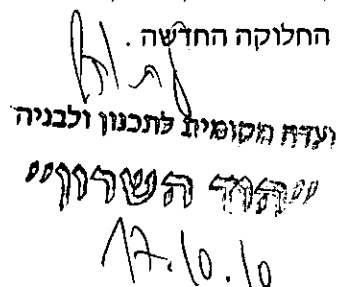 החלוקה החדשה.
ועדה מקומית לתכנון ולבניה
"הוד השרון"
17.10.10